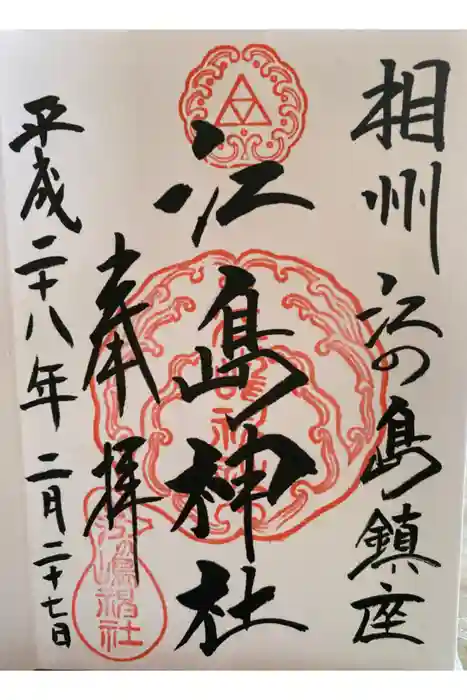 相州 江の島鎮座
江島神社
奉拝
平成二十八年 二月二十七日